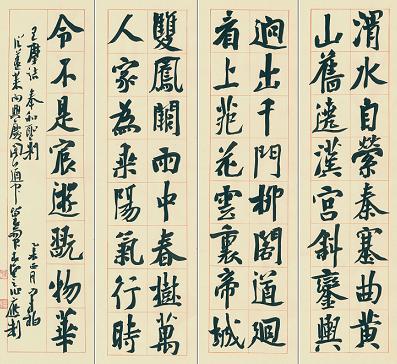 渭水自縈秦塞曲黃
山舊遶漢宮斜鑾輿
迥出千門柳閣道迴
看上苑花雲裏帝城
雙鳳闕雨中春樹萬
人家為乘陽氣行時
令不是宸遊翫物華
王摩詰 奉和聖制
從蓬萊向興慶閣道中留春雨中春望之作應制